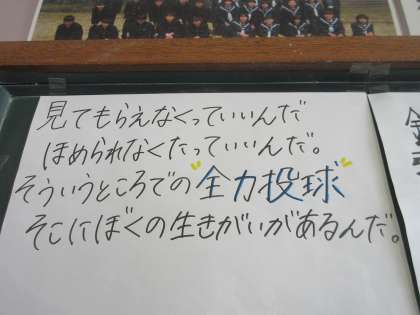 見てもらえなくっていいんだ
ほめられなくたっていいんだ。
そういうところでの"全力投球"
そこにぼくの生きがいがあるんだ。